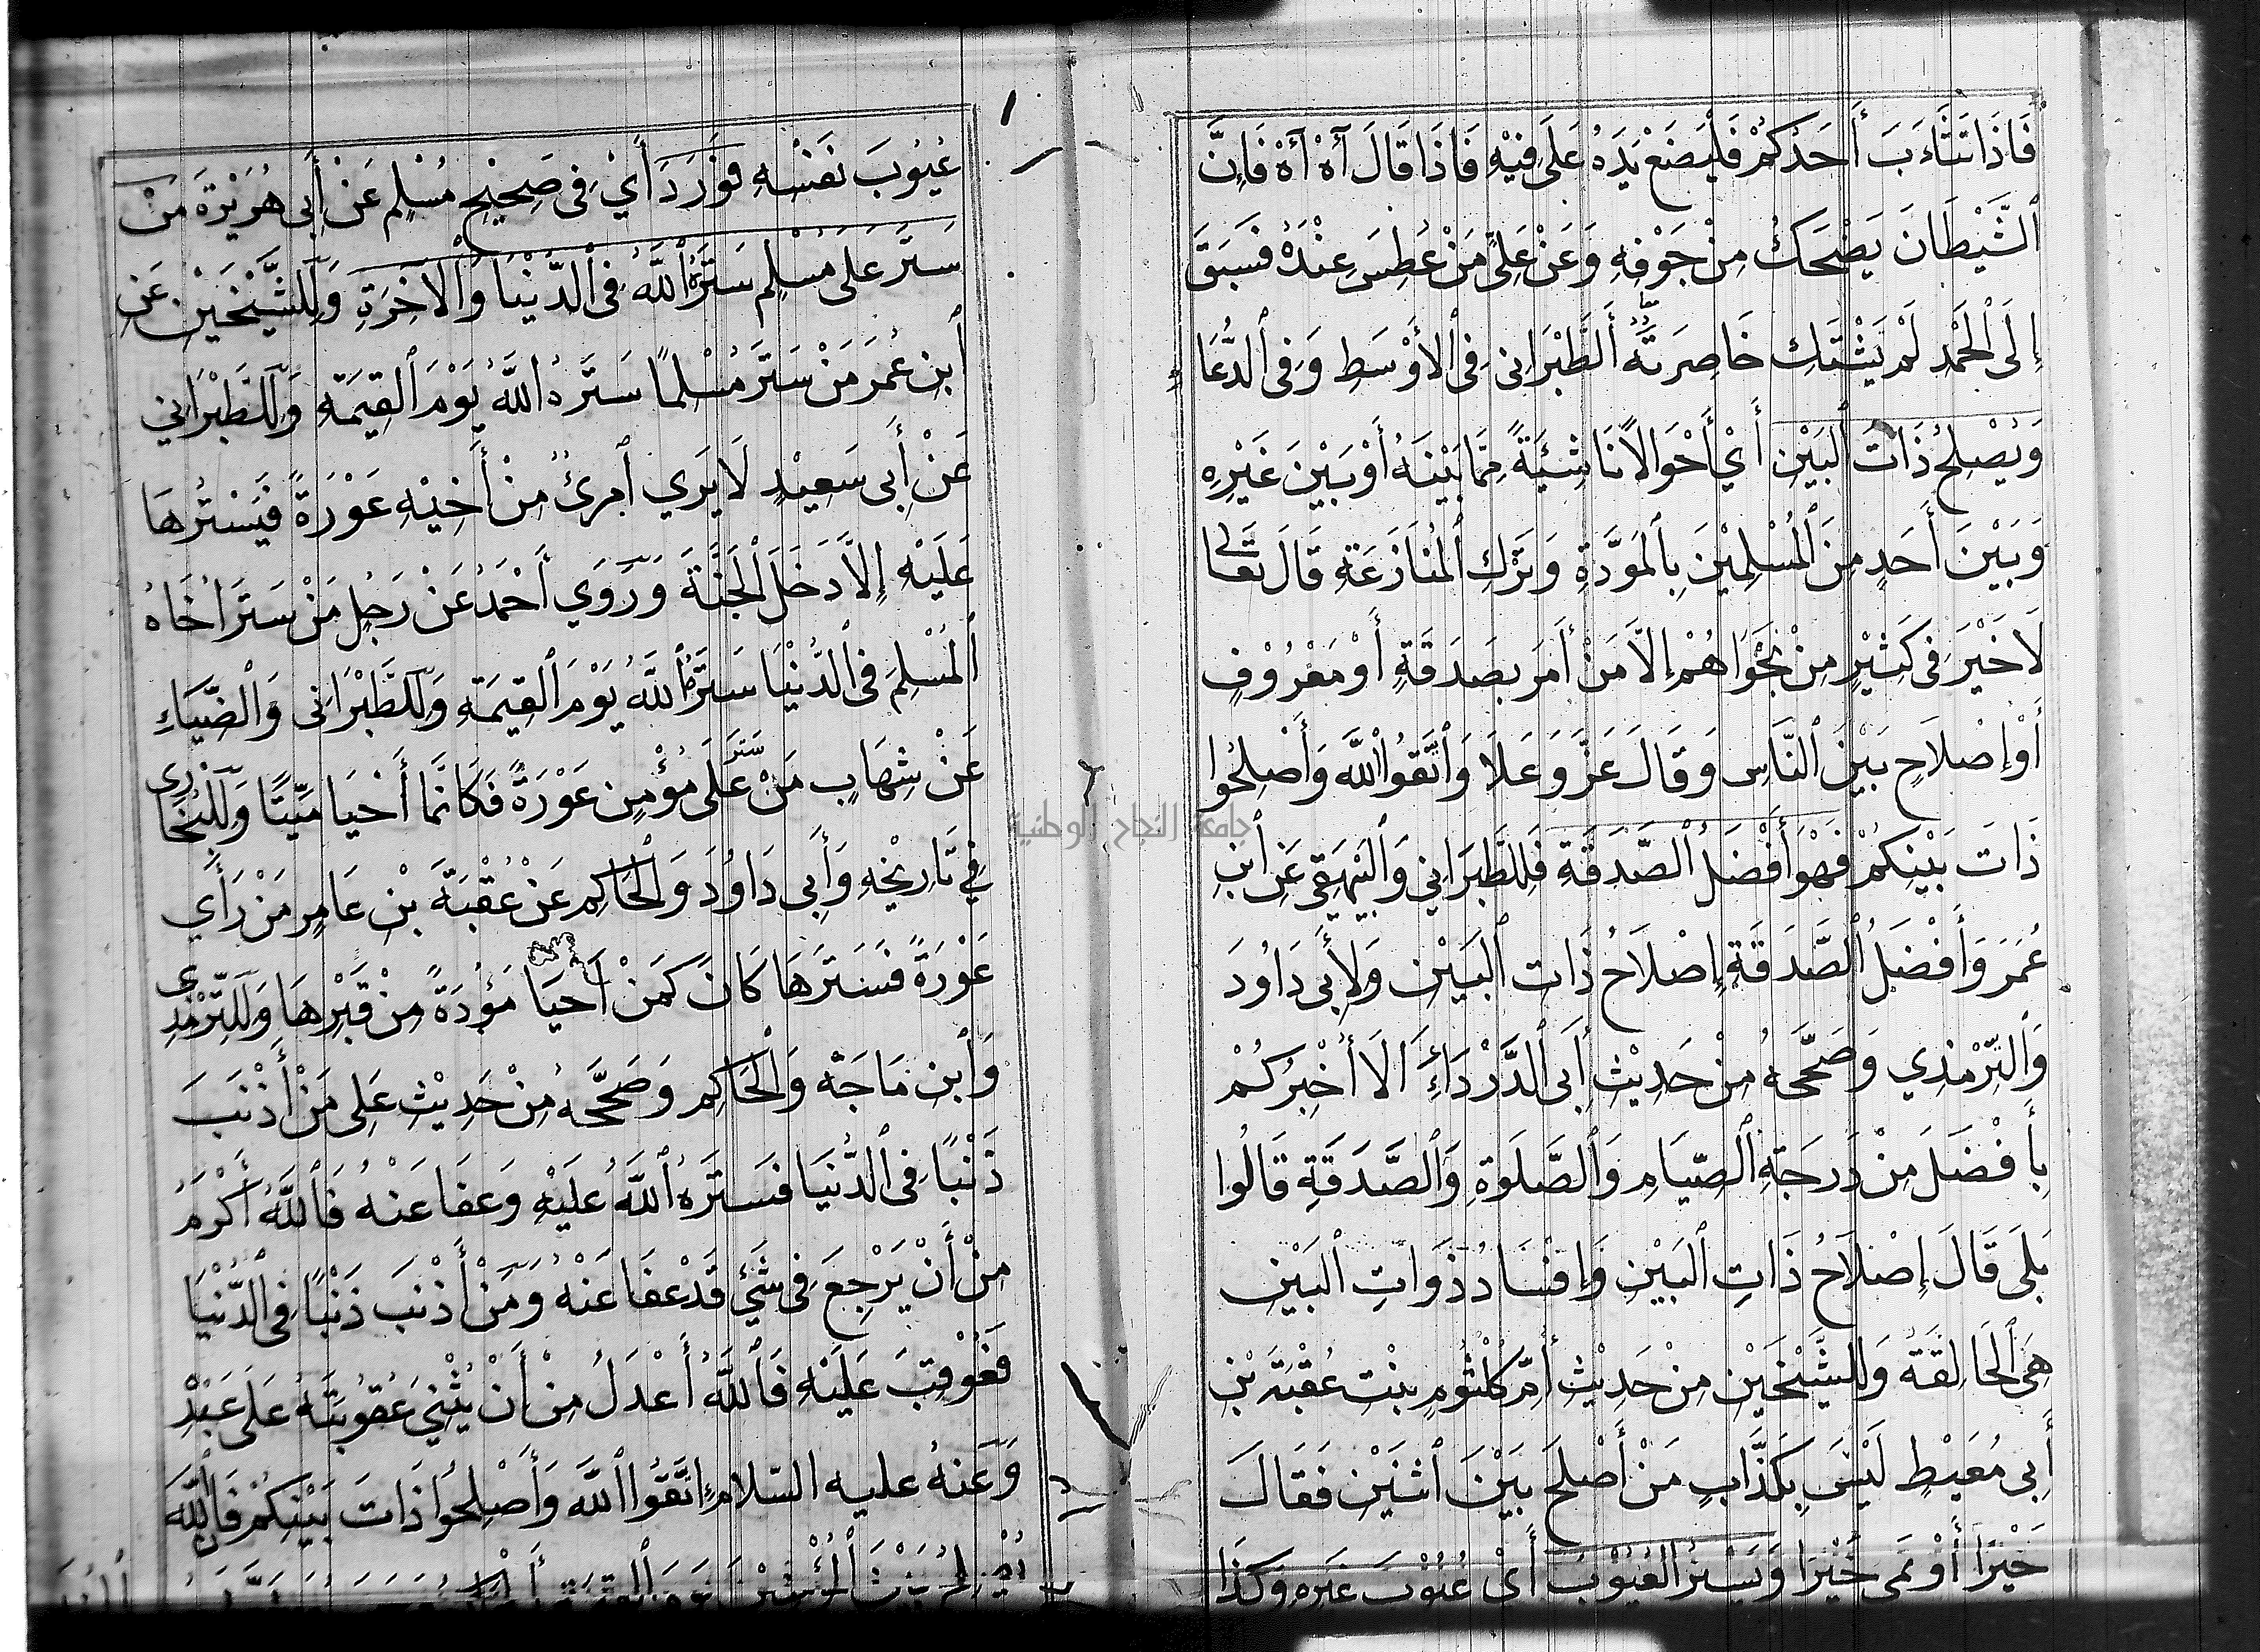 فَاِذَا تَثَاءَبَ أَحَدُكُمْ فَلْيَضَعْ يَدَهُ عَلَى فِيْهِ فَاِذَا قَالَ آهْ آهْ فَاِنَّ
ٱلشَّيْطَانَ يَضْحَكُ مِنْ جَوْفِهِ وَعَنْ عَلِيٍّ مَنْ عُطِسَ عِنْدَهُ فَسَبَقَ
إِلَى ٱلْحَمْدِ لَمْ يَشْتَكِ خَاصِرَتَهُ أَلطَّبْرَانِى فِى ٱلْأَوْسَطِ وَفِى ٱلدُّعَاءِ
وَيُصْلِحُ ذَاتَ ٱلْبَيْنِ أَيْ أَحْوَالًا نَاشِئَةً مِمَّا بَيْنَهُ أَوْ بَيْنَ غَيْرِهِ
وَبَيْنَ أَحَدٍ مِنَ ٱلْمُسْلِمِيْنَ بِالْمَوَدَّةِ وَتَرْكِ ٱلْمُنَازَعَةِ قَالَ تَعَالَى
لَا خَيْرَ فِى كَثِيْرٍ مِنْ نَجْوَاهُمْ إِلَّا مَنْ أَمَرَ بِصَدَقَةٍ أَوْ مَعْرُوْفٍ
أَوْ إِصْلَاحٍ بَيْنَ ٱلنَّاسِ وَقَالَ عَزَّ وَعَلَا وَٱتَّقُوا ٱللَّهَ وَأَصْلِحُوا
ذَاتَ بَيْنِكُمْ فَهْوَ أَفْضَلُ ٱلصَّدَقَةِ فَلِلطَّبَرَانِي وَٱلْبَيْهَقِى عَنِ ٱبْنِ
عُمَرَ وَأَفْضَلُ ٱلصَّدَقَةِ إِصْلَاحُ ذَاتِ ٱلْبَيْنِ وَلِأَبِى دَاوُدَ
وَٱلتِّرْمِذِي وَصَحَّحَهُ مِنْ حَدِيْثِ أَبِى ٱلدَّرْدَاءِ أَلَا أُخْبِرُكُمْ
بِأَفْضَلَ مِنْ دَرَجَةِ ٱلصِّيَامِ وَٱلصَّلَوةِ وَٱلصَّدَقَةِ قَالُوا
بَلَى قَالَ إِصْلَاحُ ذَاتِ ٱلْبَيْنِ وَإِفْسَادُ ذَوَاتِ ٱلْبَيْنِ
هِىَ ٱلْحَالِقَةُ وَلِلشَّيْخَيْنِ مِنْ حَدِيْثِ أُمِّ كُلْثُوْمٍ بِنْتِ عُقْبَةَ بْنِ
أَبِي مُعَيْطٍ لَيْسَ بِكَذَّابٍ مَنْ أَصْلَحَ بَيْنَ ٱثْنَيْنِ فَقَالَ
خَيْرًا أَوْ نَمَى خَيْرًا وَيَسْتُرُ ٱلْعُيُوْبَ أَيْ عُيُوْبَ غَيْرِهِ وَكَذَا
عُيُوْبَ نَفْسِهِ فَوَرَدَ أَيْ فِى صَحِيْحِ مُسْلِمٍ عَنْ أَبِى هُرَيْرَةَ مَنْ
سَتَرَ عَلَى مُسْلِمٍ سَتَرَهُ ٱللَّهُ فِى ٱلدُّنْيَا وَٱلْآخِرَةِ وَلِلشَّيْخَيْنِ عَنِ
ٱبْنِ عُمَرَ مَنْ سَتَرَ مُسْلِمًا سَتَرَهُ ٱللَّهُ يَوْمَ ٱلْقِيمَةِ وَلِلطَّبْرَانِي
عَنْ أَبِى سَعِيْدٍ لَا يَرَي ٱمْرِئٌ مِنْ أَخِيْهِ عَوْرَةً فَيَسْتُرُهَا
عَلَيْهِ إِلَّا دَخَلَ ٱلْجَنَّةَ وَرَوَي أَحْمَدُ عَنْ رَجُلٍ مَنْ سَتَرَ اَخَاهُ
ٱلْمُسْلِمَ فِى ٱلدُّنْيَا سَتَرَهُ ٱللَّهُ يَوْمَ ٱلْقِيمَةِ وَلِلطَّبْرَانِى وَٱلضِّيَاءِ
عَنْ شِهَابٍ مَنْ سَتَرَ عَلَى مُؤْمِنٍ عَوْرَةً فَكَأَنَّمَا أَحْيَا مَيِّتًا وَلِلْبُخَارِى
فِي تَارِيْخِهِ وَأَبِى دَاوُدَ وَٱلْحَاكِمِ عَنْ عُقْبَةَ بْنِ عَامِرٍ مَنْ رَأَي
عَوْرَةً فَسَتَرَهَا كَانَ كَمَنْ أَحْيَا مَوْؤُدَةً مِنْ قَبْرِهَا وَلِلتِّرْمِذِي
وَٱبْنِ مَاجَهْ وَٱلْحَاكِمِ وَصَحَّحَهُ مِنْ حَدِيْثِ عَلِى مَنْ أَذْنَبَ
ذَنْبًا فِى ٱلدُّنْيَا فَسَتَرَهُ ٱللَّهُ عَلَيْهِ وَعَفَا عَنْهُ فَٱللَّهُ أَكْرَمُ
مِنْ أَنْ يَرْجِعَ فِى شَيْءٍ قَدْ عَفَا عَنْهُ وَمَنْ أَذْنَبَ ذَنْبًا فِى ٱلدُّنْيَا
فَعُوْقِبَ عَلَيْهِ فَٱللَّهُ أَعْدَلُ مِنْ أَنْ يُثْنِيَ عُقُوْبَتَهُ عَلَى عَبْدِهِ
وَعَنْهُ عليه السّلام إِتَّقُوا ٱللَّهَ وَأَصْلِحُوا ذَاتَ بَيْنِكُمْ فَاِنَّ ٱللَّهَ
يُصْلِحُ بَيْنَ ٱلْمُؤْمِنِيْنَ يَوْمَ ٱلْقِيمَةِ
جامعة النجاح الوطنية